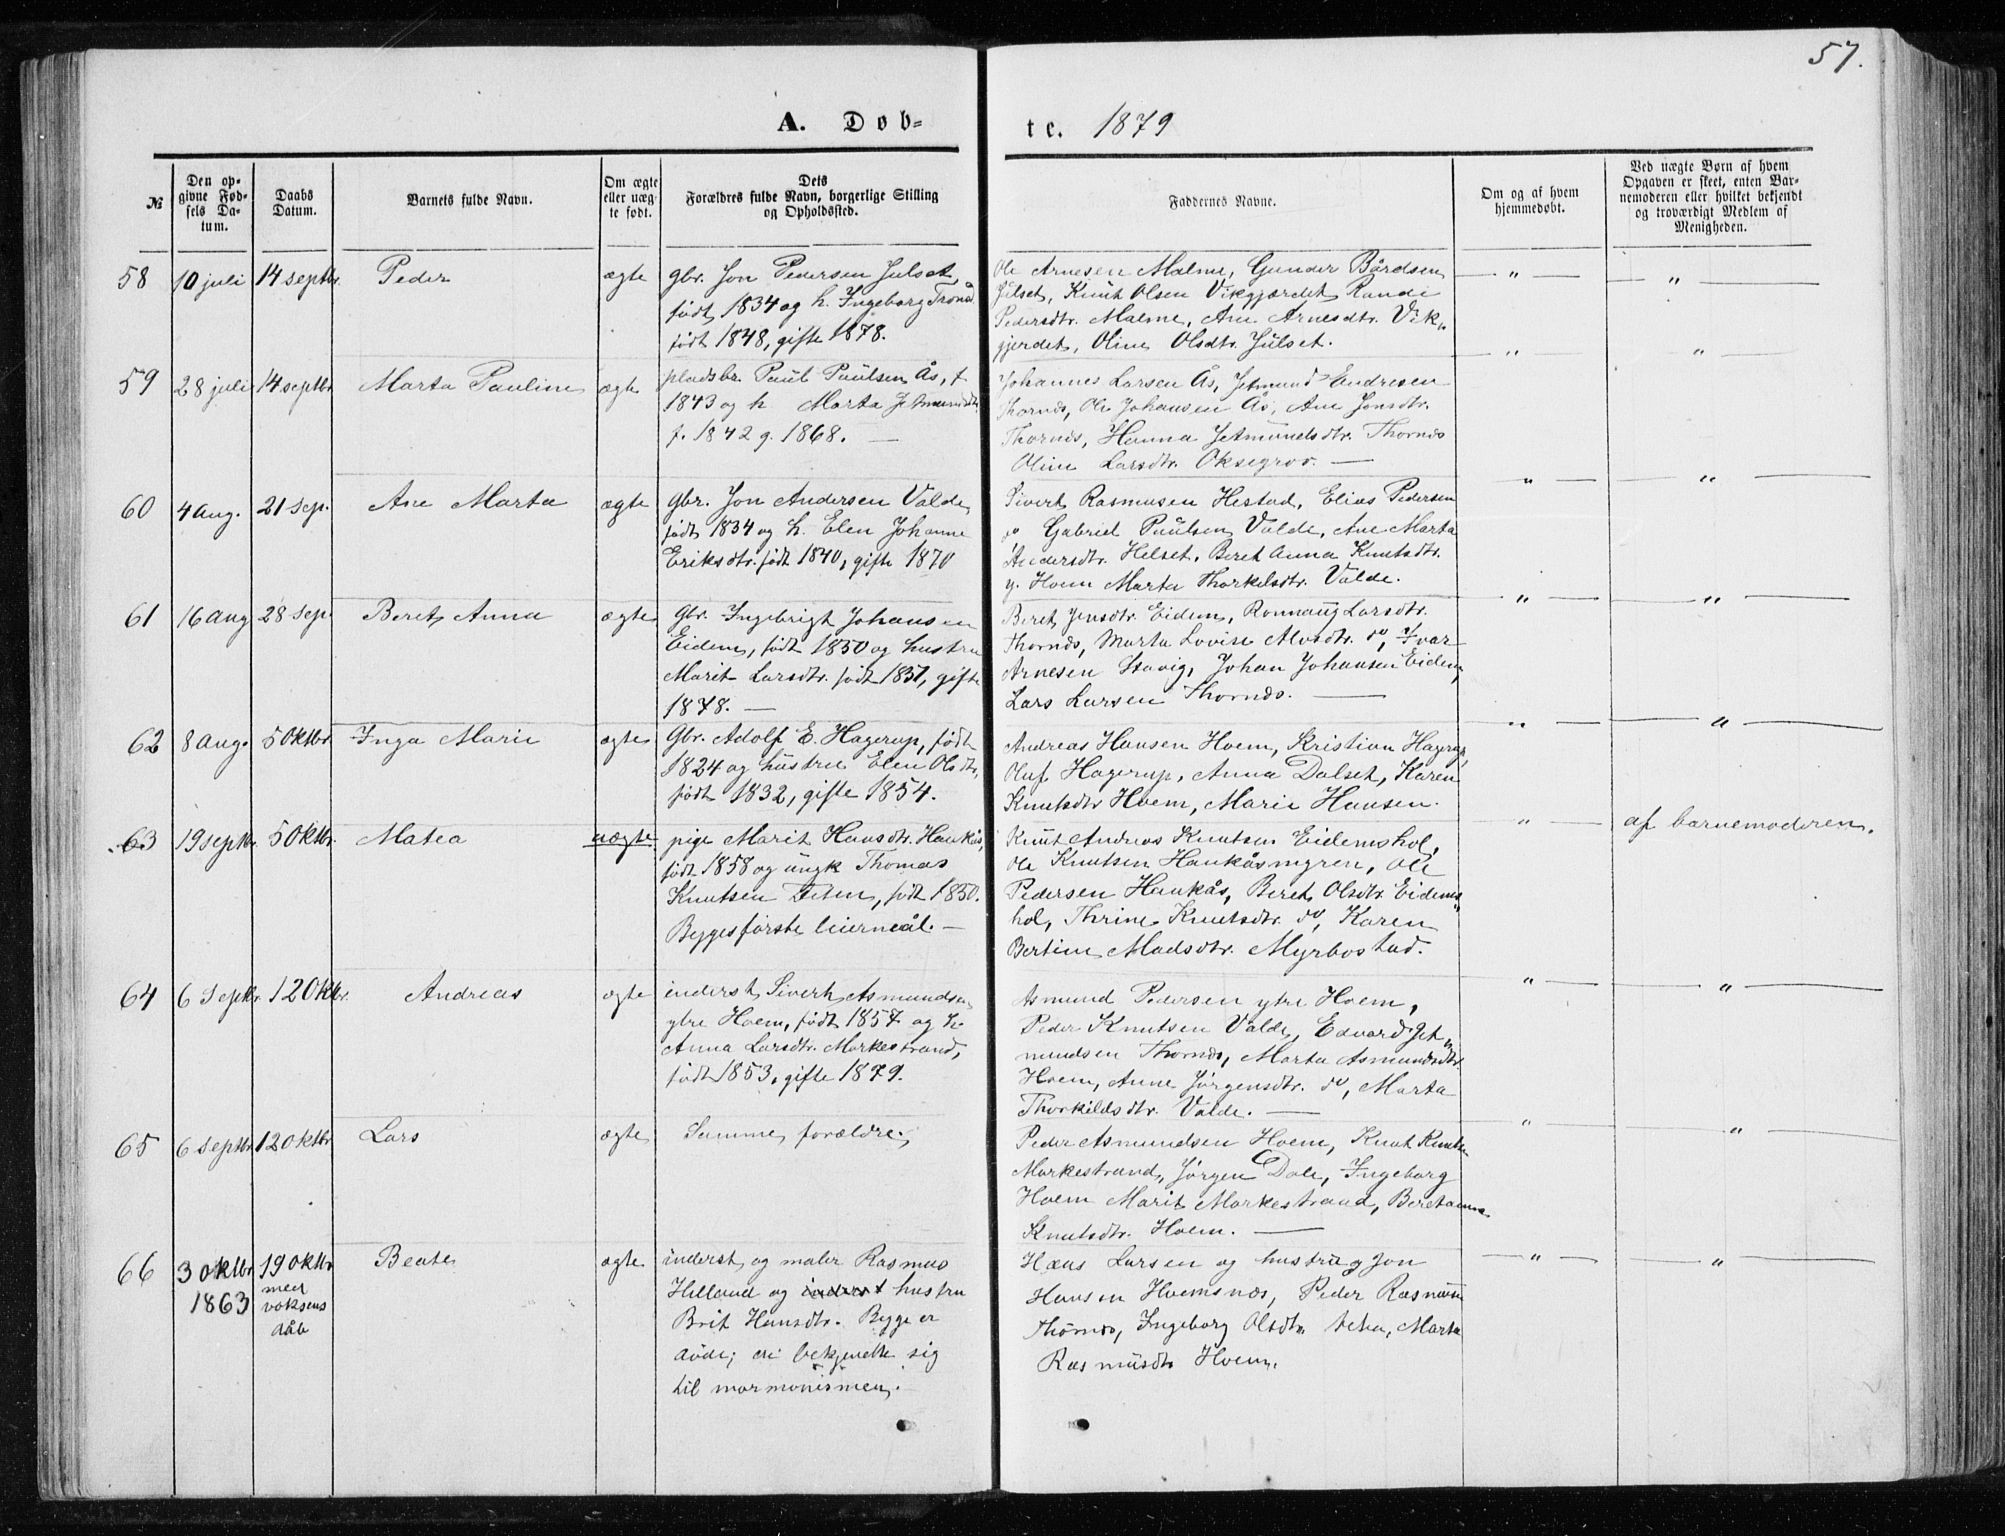 57.
A. Døb-
te. 1879
№
Den op-
givne Fød-
sels Da-
tum.
Daabs
Datum.
Barnets fulde Navn.
Om ægte
eller uæg-
te født.
Dets
Forældres fulde Navn, borgerlige Stilling
og Opholdssted.
Faddernes Navne.
Om og af hvem
hjemmedøbt.
Ved uægte Børn af hvem
Opgaven er skeet, enten Bar-
nemoderen eller hvilket bekjendt
og troværdigt Medlem af
Menigheden.
58 10 juli 14 septbr. Peder ægte
gbr. Jon Pedersen Julset,
født 1834 og h. Ingeborg Trond
født 1848, gifte 1878.
Ole Arnesen Malme, Gunder Bårdsen
Julset, Knut Olsen Vikgjærdet, Randi
Pedersdtr. Malme, Ane Arnesdtr. Vik„
gjerdet, Oline Olsdtr. Julset.
" "
59 28 juli 14 septbr Marta Pauline ægte
pladsbr. Paul Paulsen Ås, f.
1843 og h. Marta Jetmundsdtr.
f. 1842 g. 1868. —
Johannes Larsen Ås, Jetmund Endresen
Thornæs, Ole Johansen Ås, Ane Jonsdtr.
Thornæs, Hanna Jetmundsdtr. Thornæs
Oline Larsdtr. Oksegrov. —
" "
60 4 aug. 21 sep. Ane Marta ægte
gbr. Jon Andersen Valde,
født 1834 og h. Elen Johanne
Eriksdtr. født 1840, gifte 1870
Sivert Rasmusen Hestad, Elias Pedersen
do Gabriel Paulsen Valde, Ane Marta
Andersdtr. Helset, Beret Anna Knutsdtr.
y. Hoem Marta Thorkelsdtr. Valde.
" "
61 16 aug 28 sep. Beret Anna ægte
Gbr. Ingebrigt Johansen
Eidem, født 1850 og hustru
Marit Larsdtr. født 1851, gifte
1878. —
Beret Jensdtr. Eidem, Ronnaug Larsdtr.
Thornæs, Marta Lovise Alvsdtr. do, Ivar
Arnesen Stavig, Johan Johansen Eidem,
Lars Larsen Thornæs. —
" "
62 8 aug. 5 oktbr Inga Marie ægte
Gbr. Adolf E. Hagerup, født
1824 og hustru Elen Olsdtr,
født 1832, gifte 1854.
Andreas Hansen Hoem, Kristian Hagerup,
Oluf Hagerup, Anna Dalset, Karen
Knutsdtr Hoem, Marie Hansen.
" "
63 19 septbr 5 oktbr. Matea uægte
pige Marit Hansdtr. Haukås,
født 1858 og ungk Thomas
Knutsen Teten, født 1850.
Begges første leiermål. —
Knut Andreas Knutsen Eidemshol,
Ole Knutsen Haukåsmyren, Ole
Pedersen Haukås, Beret Olsdtr. Eidems„
hol, Thrine Knutsdtr. do, Karen
Bertine Madsdtr. Myrbostad.
" af barnemoderen.
64 6 septbr. 12 oktbr. Andreas ægte
inderst Sivert Asmundsen
ytre Hoem, født 1857 og h.
Anna Larsdtr. Morkestrand,
født 1853, gifte 1879.
Asmund Pedersen ytre Hoem,
Peder Knutsen Valde, Edvard Jet„
mundsen Thornæs, Marta Asmundsdtr.
Hoem, Anne Jørgensdtr. do, Marta
Thorkildsdtr. Valde. —
" "
65 6 septbr 12 oktbr. Lars ægte
Samme forældre.
Peder Asmundsen Hoem, Knut Knutsen
Morkestrand, Jørgen Dale, Ingeborg
Hoem Marit Morkestrand, Beretanna
Knutsdtr. Hoem. —
" "
66 3 oktbr 1863 19 oktbr
med
voksens
dåb
Beate ægte
inderst og maler Rasmus
Helland og inderst hustru
Brit Hansdtr. Begge er
døde; de bekjendte sig
til mormonismen.
Hans Larsen og hustru og Jon
Hansen Hoemsnæs, Peder Rasmus
Thornæs, Ingeborg Olsdtr. Marta
Rasmusdtr Hoem.
" "